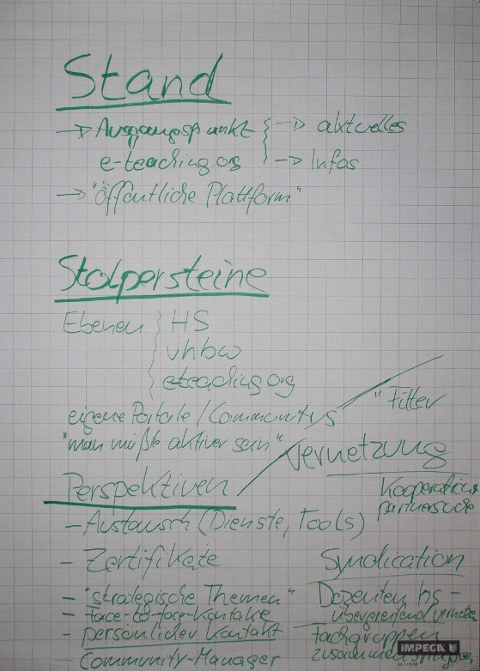 Stand
→ Ausgangspunkt → aktuelles
e-teaching.org → Infos
→ "öffentliche Plattform"
Stolpersteine
Ebenen HS
vhbw
eteaching.org
eigene Portale / Communitys
"Filter
"man müßte aktiver sein"
Vernetzung
Perspektiven
Kooperations
partnersuche
- Austausch (Dienste, Tools)
- Zertifikate
Syndication
- "strategische Themen"
Dozenten hs-
- face-to-face-Kontakte
übergreifend
- persönlicher Kontakt
Fachgruppen
Community-Manager
IMPEGA